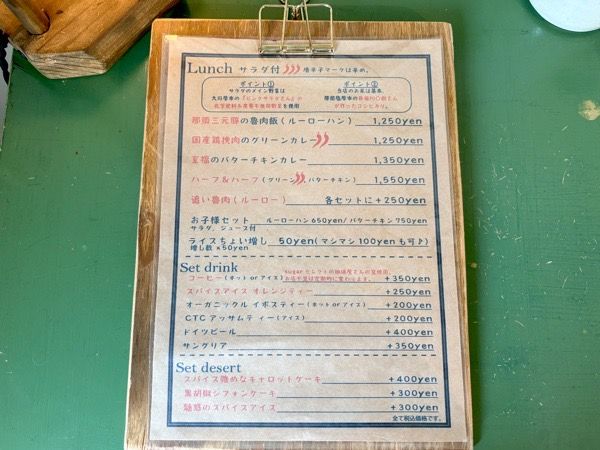 Lunch サラダ付 唐辛子マークは辛め。
ポイント① ポイント②
サラダのメイン野菜は 当店のお米は基本、
那須三元豚の魯肉飯(ルーローハン) 1,250yen
国産鶏挽肉のグリーンカレー 1,250yen
至福のバターチキンカレー 1,350yen
ハーフ&ハーフ(グリーン,バターチキン) 1,550yen
追い魯肉(ルーロー) 各セットに+250yen
お子様セット ルーローハン650yen/バターチキン750yen
サラダ、ジュース付
ライスちょい増し 50yen(マシマシ100yenも可♪)
増し数×50yen
Set drink
コーヒー(ホットorアイス) +350yen
スパイスアイス オレンジティー +250yen
オーガニックルイボスティー(ホットorアイス) +200yen
CTCアッサムティー(アイス) +200yen
ドイツビール +400yen
サングリア +350yen
Set desert
スパイス強めなキャロットケーキ +400yen
黒胡椒シフォンケーキ +300yen
魅惑のスパイスアイス +300yen
全て税込価格です。